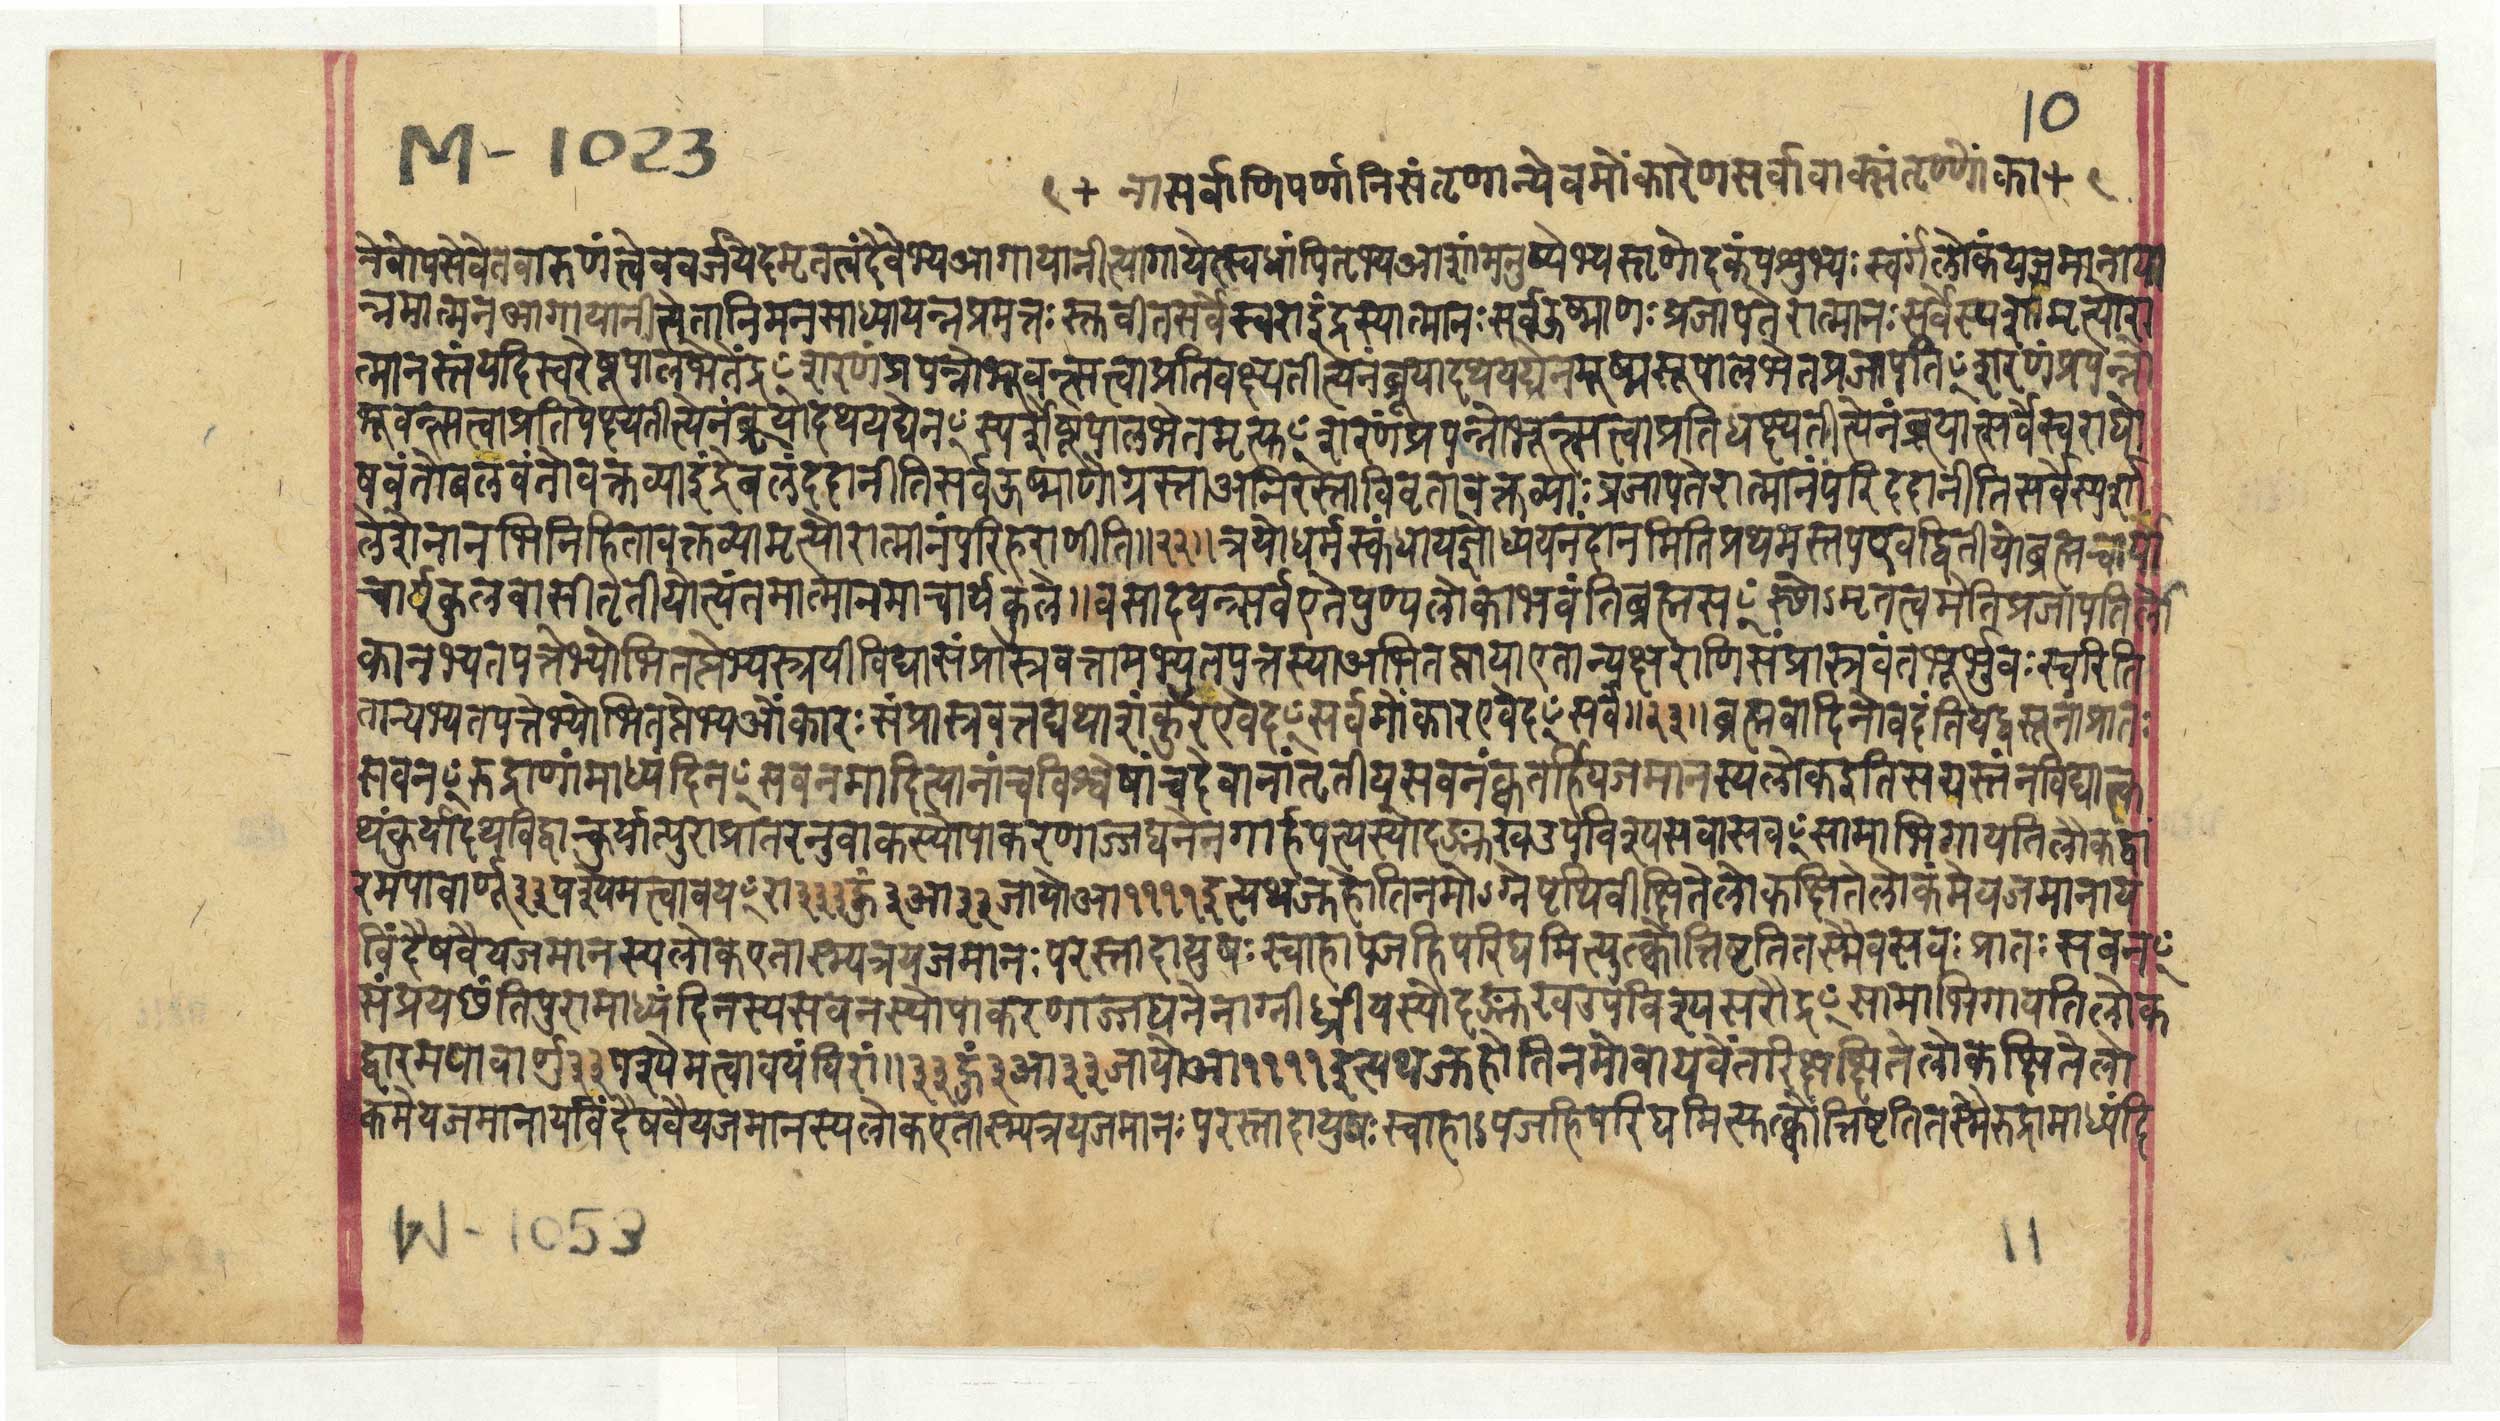 10
M - 1023
९ + नासर्वाणिपर्णानिसंतृणान्येवमोंकारेणसर्वावाक्संतृण्णोंका + ९
नेवोपसेवेतवारुणंत्वेववर्जयेदमृतत्वंदेवेभ्यआगायानीत्यागायेत्स्वधांपितृभ्यआशांमनुष्येभ्यस्तृणोदकंपशुभ्यःस्वर्गंलोकंयजमानाया
न्नमात्मनआगायानीत्येतानिमनसाध्यायन्नप्रमत्तःस्तवीतसर्वेस्वराइंद्रस्यात्मानःसर्वऊष्माणःप्रजापतेरात्मानःसर्वेस्पर्शामृत्योरा
त्मानस्तंयदिस्वरेषूपालभेतेंद्र ँ्शरणंप्रपन्नोभूवन्त्सत्वाप्रतिवक्ष्यतीत्येनंब्रूयादथयद्येनमूष्मसूपालभेतप्रजापति ँ्शरणंप्रपन्नो
भूवन्त्सत्वाप्रतिपेक्ष्यतीत्येनंब्रूयादथयद्येन ँ्स्पर्शेषूपालभेतमृत्यु ँ्शरणंप्रपन्नोभूत्सत्वाप्रतिधक्ष्यतीत्येनंब्रूयात्सर्वेस्वराघो
षवंतोबलवंतोवक्तव्याइंद्रेबलंददानीतिसर्वऊष्माणोग्रस्ताअनिरस्ताविवृतावक्तव्याःप्रजापतेरात्मानंपरिददानीतिसर्वेस्पर्शा
लेशेनानभिनिहितावक्तव्यामृत्योरात्मानंपरिहराणीति॥२२॥त्रयोधर्मस्कंधायज्ञोध्ययनंदानमितिप्रथमस्तपएवद्वितीयोब्रह्मचार्या
चार्यकुलवासीतृतीयोत्यंतमात्मानमाचार्यकुले॥वसादयन्त्सर्वएतेपुण्यलोकाभवंतिब्रह्मस ँ्स्थोऽमृतत्वमेतिप्रजापतिर्लो
कानभ्यतपत्तेभ्योभितप्तेभ्यस्त्रयीविद्यासंप्रास्त्रवत्तामभ्यतपत्तस्याअभितप्तायाएतान्यक्षराणिसंप्रास्त्रवंतभूर्भुवःस्वरिति
तान्यभ्यतपत्तेभ्योभितप्तेभ्यओंकारःसंप्रास्त्रवत्तद्यथाशंकुरएवेद ँ्सर्वमोंकारएवेद ँ्सर्वं॥२३॥ब्रह्मवादिनोवदंतियद्वसूनांप्रातः
सवन ँ्रुद्राणांमाध्यंदिन ँ्सवनमादित्यानांचविश्वेषांचदेवानांतृतीयसवनंक्वतर्हियजमानस्यलोकइतिसयस्तंनविद्यात्क
थंकुर्यादथविद्वान्कुर्यात्पुराप्रातरनुवाकस्योपाकरणाज्जघनेनगार्हपत्यस्योदङ्मुखउपविश्यसवासव ँ्सामाभिगायतिलोकद्वा
रमपावार्णू३३पश्येमत्वावये ँ्रा३३३हुं३आ३३जायोआ११११इत्यथजुहोतिनमोऽग्नयेपृथिवीक्षितेलोकक्षितेलोकंमेयजमानाय
विंदैषवैयजमानस्यलोकएतास्म्यत्रयजमानःपरस्तादायुषःस्वाहापजहिपरिघमित्युत्क्वोत्तिष्ठतितस्मैवसवःप्रातःसवन ँ्
संप्रयछंतिपुरामाध्यंदिनस्यसवनस्योपाकरणाज्जघनेनाग्नीध्रीयस्योदङ्मुखउपविश्यसरौद्र ँ्सामाभिगायतिलोक
द्वारमपावार्णू३३पश्येमत्वावयंविरा॥३३हुं३आ३३जायोआ११११इत्यथजुहोतिनमोवायवेंतरिक्षक्षितेलोकक्षितेलो
कंमेयजमानायविंदैषवैयजमानस्यलोकएतास्म्यत्रयजमानःपरस्तादायुषःस्वाहाऽपजहिपरिघमित्युत्क्वोत्तिष्ठतितस्मैरुद्रामाध्यंदि
W - 1053
11